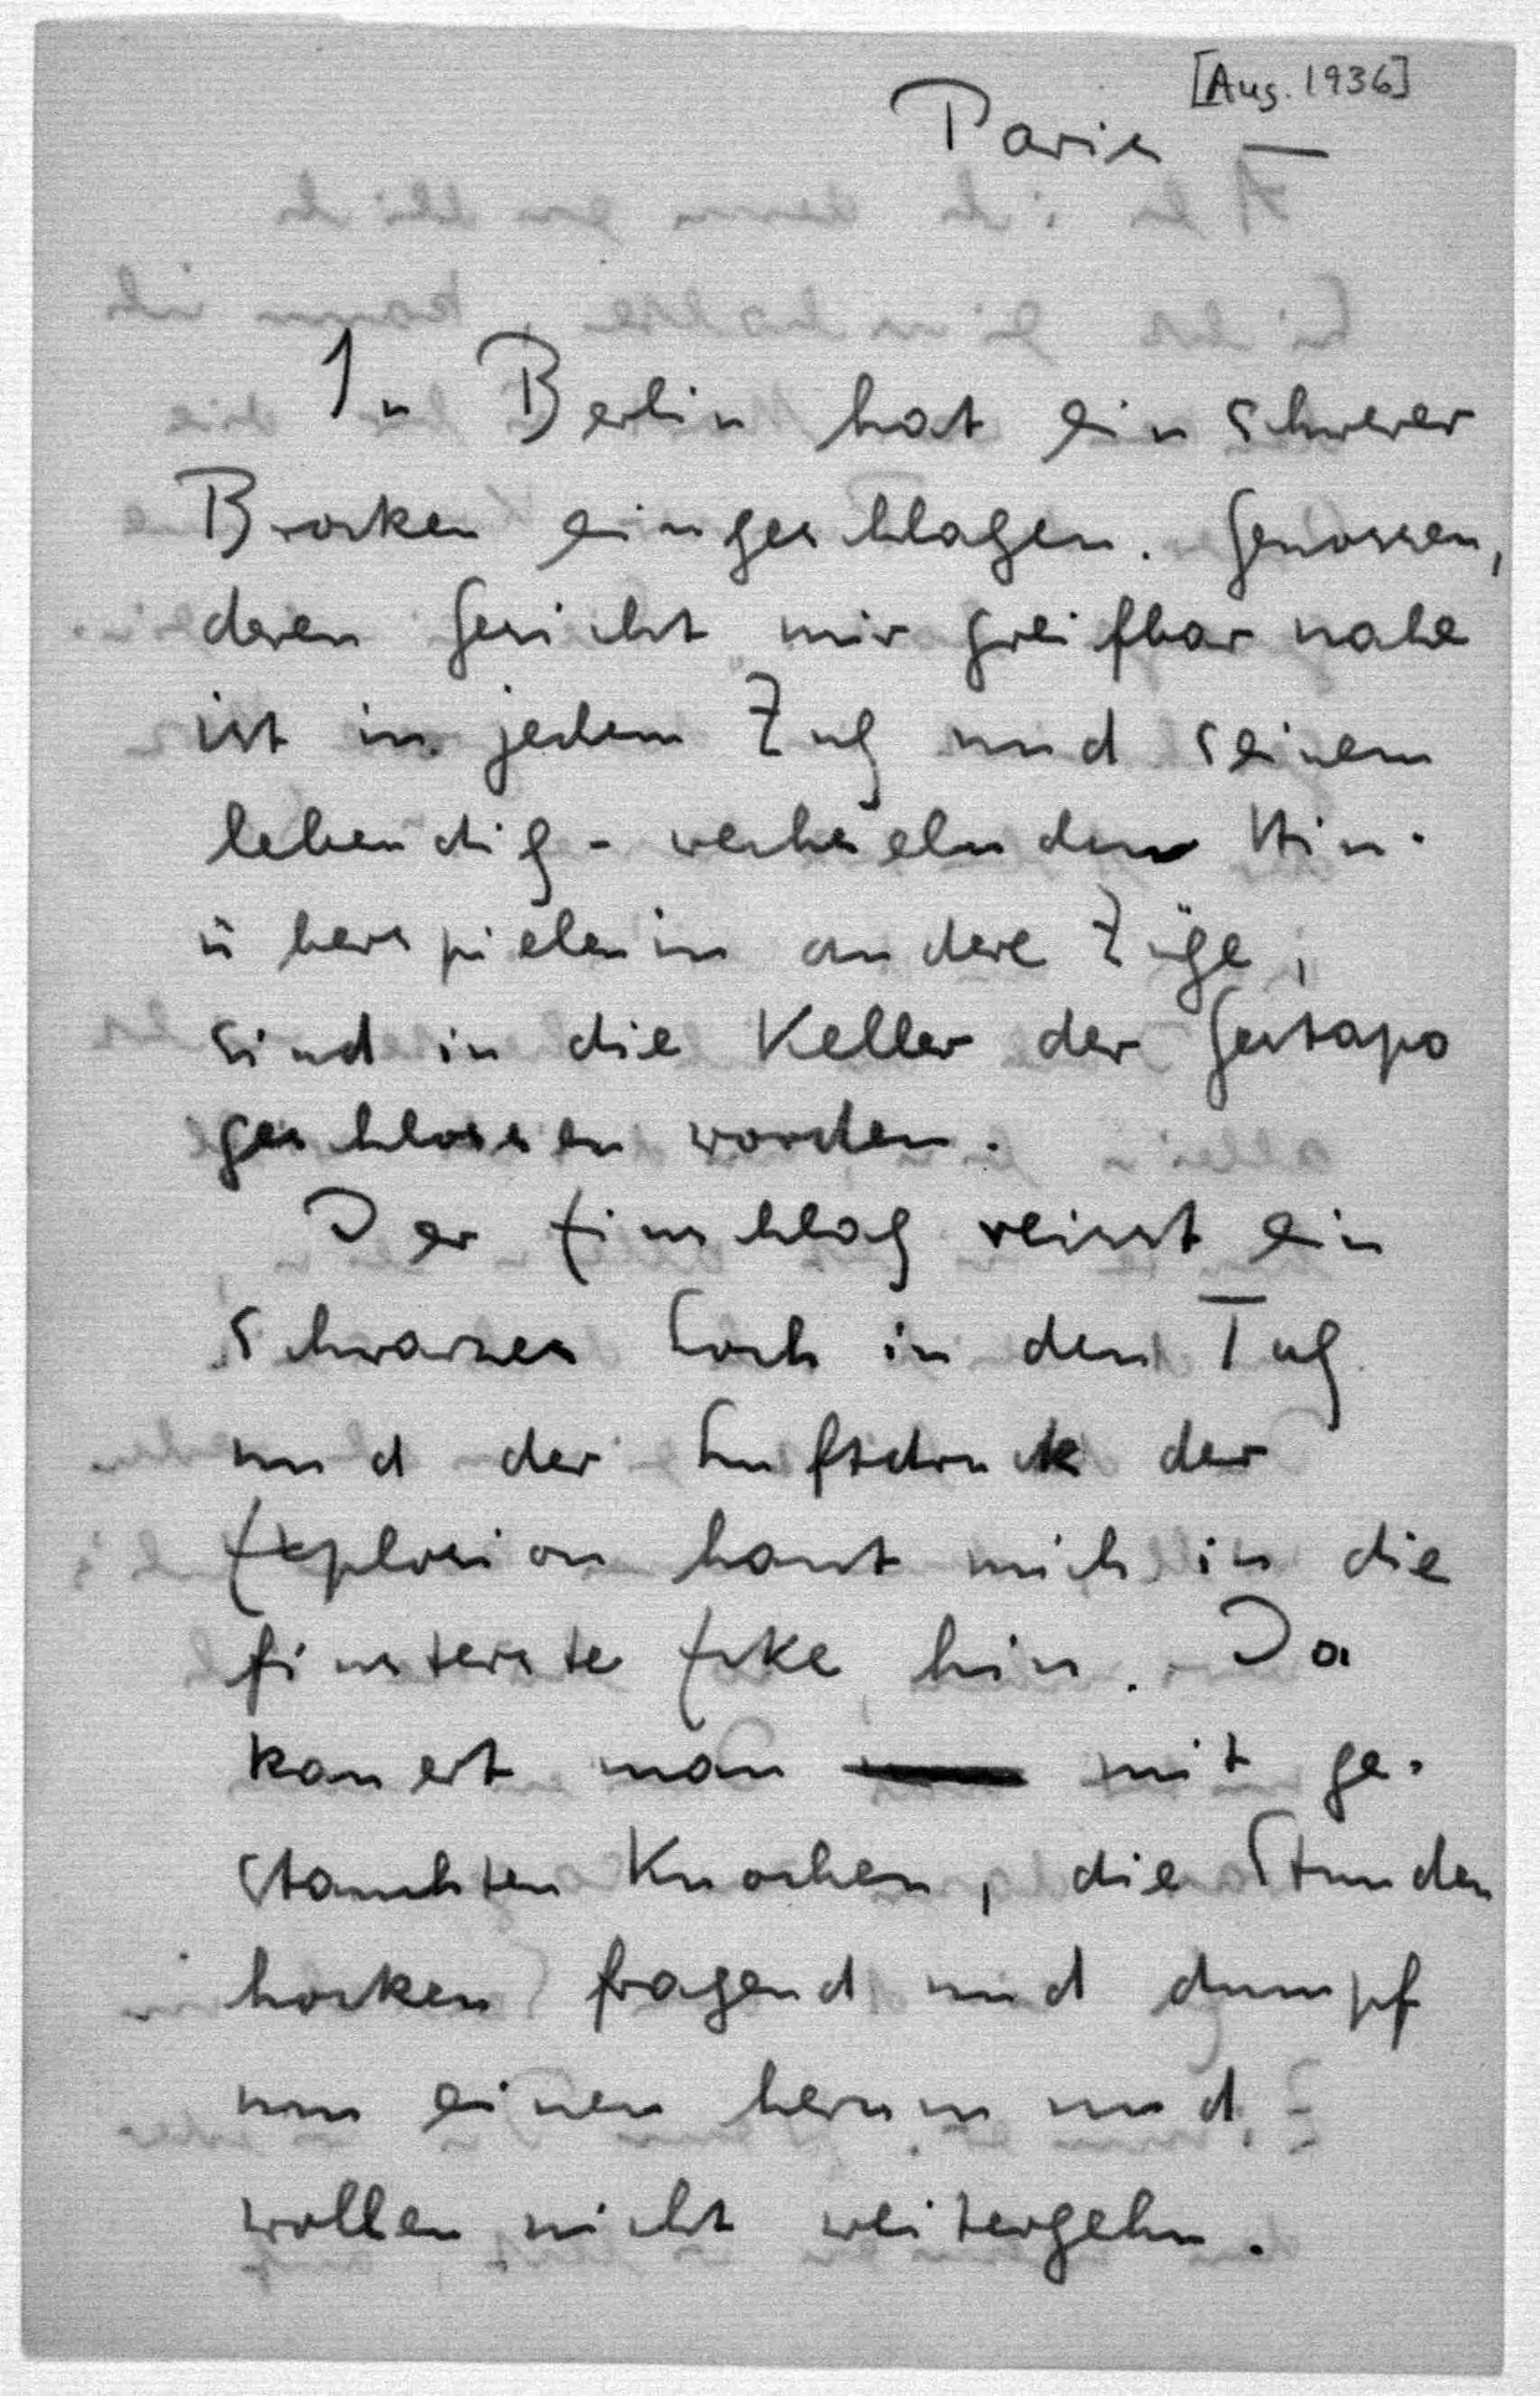 [Aug. 1936]
Paris —
In Berlin hat ein schwerer
Brocken eingeschlagen. Genossen,
deren Gesicht mir greifbar nahe
ist in jedem Zug und seinem
lebendig-wechselnden Hin-
überspielen in andere Züge,
sind in die Keller der Gestapo
geschlossen worden.
Der Einschlag reisst ein
schwarzes Loch in den Tag
und der Luftdruck der
Explosion haut mich in die
finsterste Ecke hin. Da
kauert man mit ge-
stauchten Knochen, die Stunden
hocken fragend und dumpf
um einen herum und
wollen nicht weitergehn.